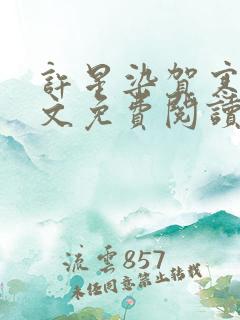 許星染賀寒
文免費閱讀
流雲857
未經同意禁止轉載